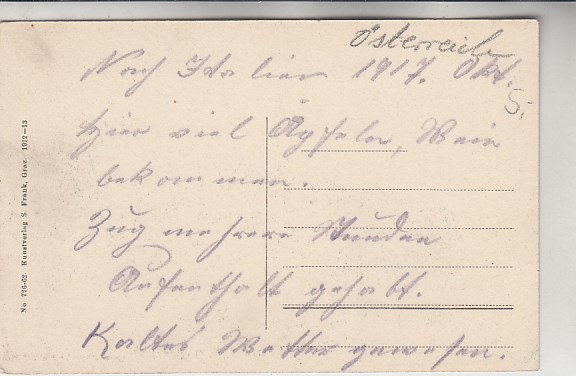 Österreich
Nach Italien 1917. Okt.
5.
Hier viel Äpfeln, Wein
bekommen.
Zug mehrere Stunden
Aufenthalt gehabt.
Kaltes Wetter gewesen.
No 716-62. Kunstverlag S. Frank, Graz. 1912-13